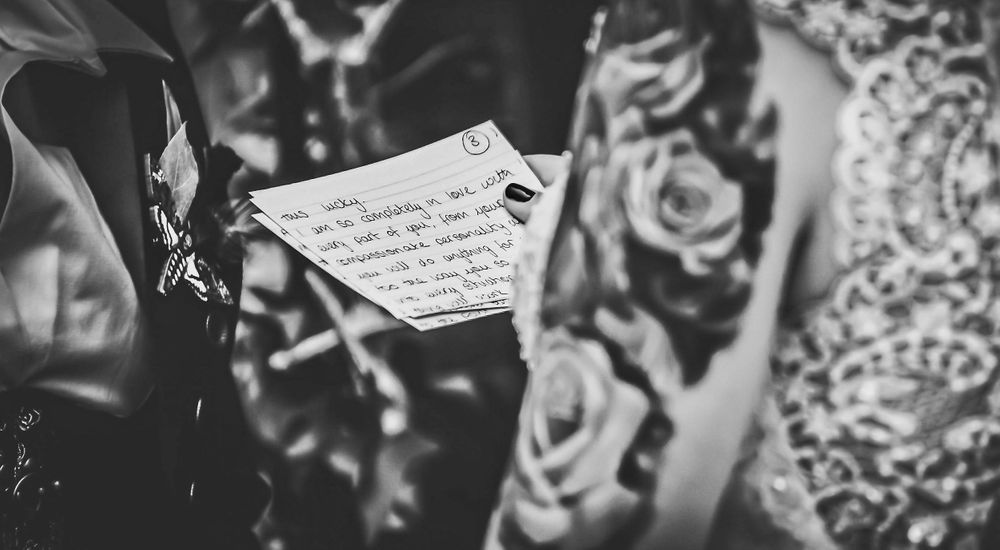 3
this lucky.
I am so completely in love with
every part of you, from your
compassionate personality
you will do anything for
to the way you so
in every situation